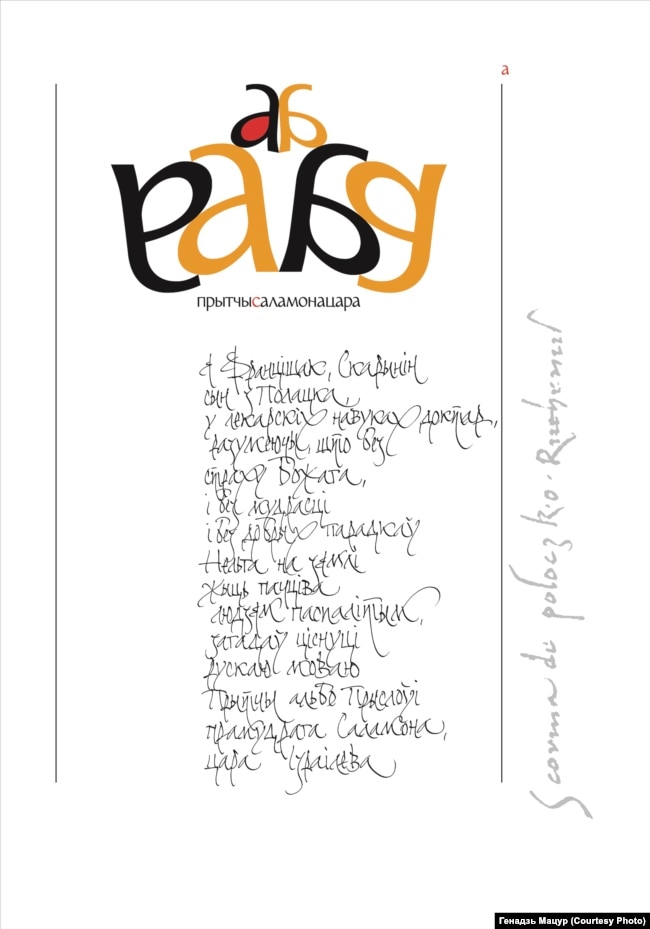 а
аб
прытчысаламонацара
Я Францішак, Скарынін
сын з Полацка,
у лекарскіх навуках доктар,
разумеючы, што без
страху Божага,
і без мудрасці
і без добрых парадкаў
Нельга на зямлі
жыць пачціва
людзям паспалітым,
загадаў ціснуці
Рускаю моваю
Прытчы альбо Прыслоўі
прамудрага Саламона,
цара Ізраілева
Scorina de poloczko · Ruthenus
Генадзь Мацур (Courtesy Photo)